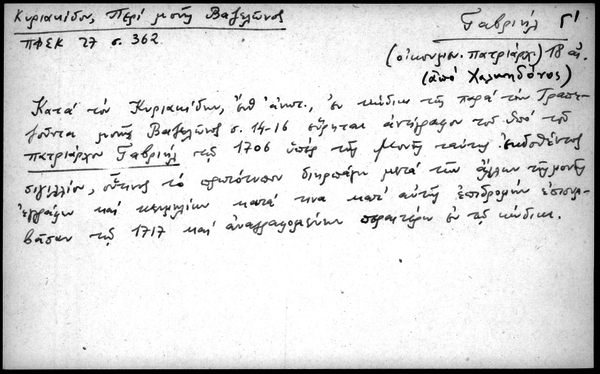 Κυριακίδου, Περί μονῆς Βαζελῶνος
ΠΦΣΚ 27 σ. 362
Γαβριήλ Γ'
(οἰκουμεν. πατριάρχ.) 18 αἰ.
(ἀπό Χαλκηδόνος)
Κατά τόν Κυριακίδην, ἔνθ' ἀνωτ., ἐν κώδικι τῆς περί τήν Τραπε-
ζοῦντα μονῆς Βαζελῶνος σ. 14-16 εὕρηται ἀντίγραφον τοῦ ὑπό τοῦ
πατριάρχου Γαβριήλ τῷ 1706 ὑπέρ τῆς μονῆς ταύτης ἐκδοθέντος
σιγιλλίου, οὗτινος τό πρωτότυπον διηρπάγη μετά τῶν ἄλλων τῆς μονῆς
ἐγγράφων καί κειμηλίων κατά τινα κατ' αὐτῆς ἐπιδρομήν
τῷ 1717 καί ἀναγραφομένην περαιτέρω ἐν τῷ κώδικι.